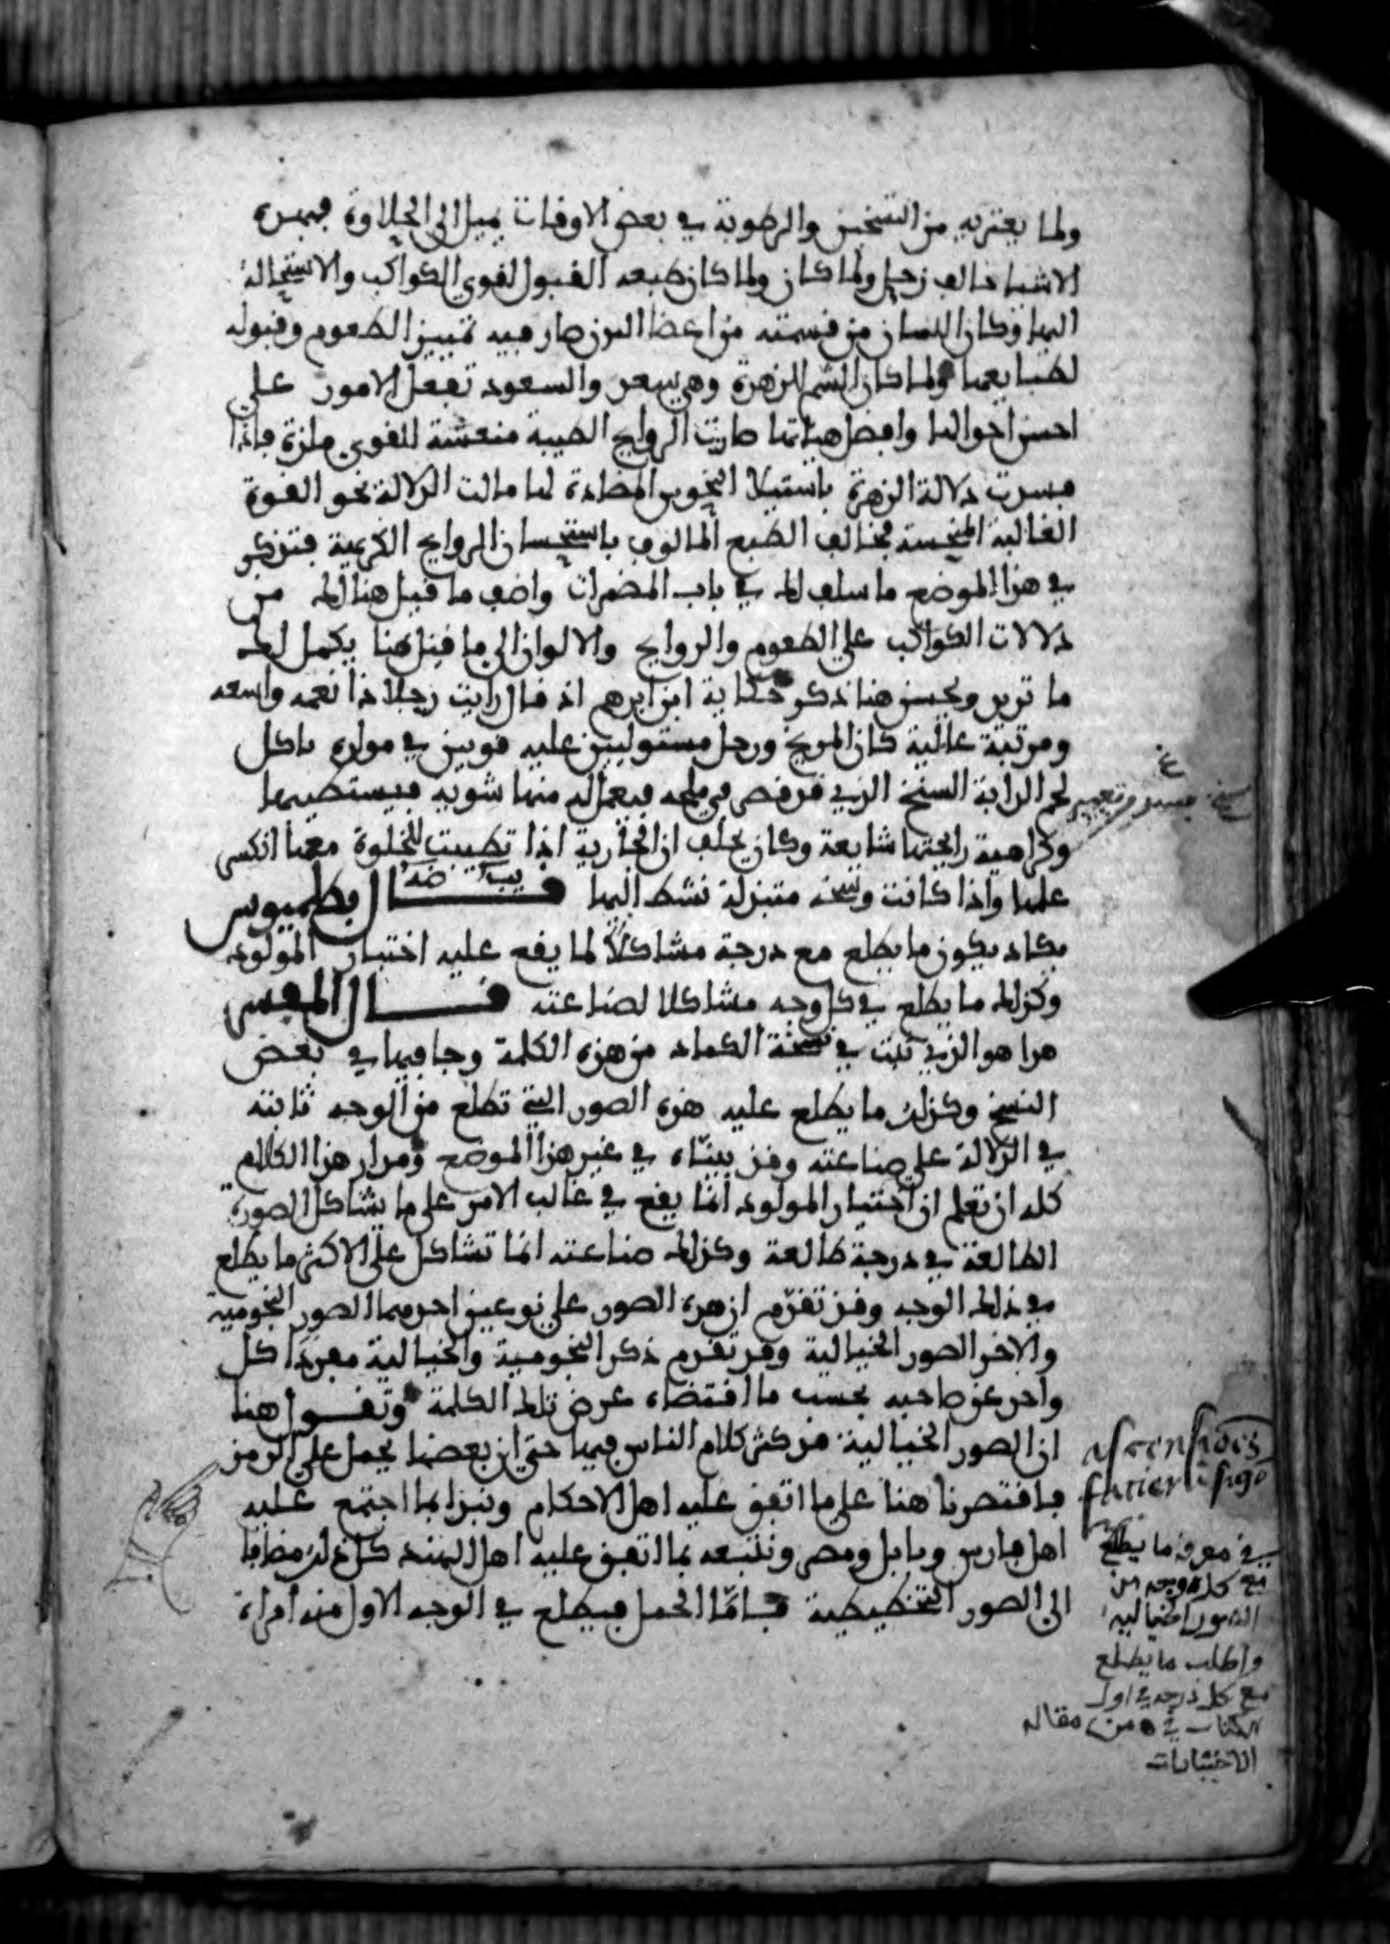 ولما يعتريه من التسخين والرطوبة في بعض الاوقات يميل الى الحلاوة فبهذه
الاشيا خالف زحل ولما كان ولما كان طبعه القبول لقوى الكواكب والاستحالة
اليها وكان اللسان من قسمته من اعضا البدن صار فيه تمييز الطعوم وقبوله
لطبايعها ولما كان الشم للزهرة وهي سعد والسعود تفعل الامور على
احسن احوالها وافضل هيأتها صارت الروايح الطيبة منعشة للقوى ملذة فاذا
فسدت دلالة الزهرة باستيلا النحوس المضادة لها مالت الدلالة نحو القوة
الغالبة المنحسة فخالف الطبع المالوف باستحسان الروايح الكريهة فتذكر
في هذا الموضع ما سلف لك في باب المضمرات واضف ما قيل هنالك من
دلالات الكواكب على الطعوم والروايح والالوان الى ما قيل هنا يكمل لك
ما تريد ويحسن هنا ذكر حكاية ابن ابرهم اذ قال رايت رجلا ذا نعمه واسعه
ومرتبة عالية كان المريخ وزحل مستوليين عليه قويين في مولده ياكل
لحم الدابة السنخ الذي قد فيعمل له منها شويه فيستطيبها
وكراهية رايحتها شايعة وكان يحلف ان الجارية اذا تطيبت للخلوة معها انكسر
عنها واذا كانت وسخه متبذلة نشط اليها قال بطلميوس
يكاد يكون ما يطلع مع درجة مشاكلا لما يقع عليه اختيار المولود
وكذلك ما يطلع في كل وجه مشاكلا لصناعته قال المفسر
هذا هو الذي ثبت في نسخة الكماد من هذه الكلمة وجا فيها في بعض
النسخ وكذلك ما يطلع عليه هذه الصور التي تطلع من الوجه ثابته
في الدلالة على صناعته وقد بيناه في غير هذا الموضع ومدار هذا الكلام
كله ان تعلم ان اختيار المولود انما يقع في غالب الامر على ما يشاكل الصورة
الطالعة في درجة طالعة وكذلك صناعته انما تشاكل على الاكثر ما يطلع
في ذلك الوجه وقد تقدم ان هذه الصور على نوعين احدهما الصور النجومية
والاخر الصور الخيالية وقد تقدم ذكر النجومية والخيالية مفردا كل
واحد عن صاحبه بحسب ما اقتضاه غرض تلك الكلمة ونقول هنا
ان الصور الخيالية قد كثر كلام الناس فيها حتى ان بعضها يحمل على الرمز
فاقتصرنا هنا على ما اتفق عليه اهل الاحكام ونبدا بما اجتمع عليه
اهل فارس وبابل ومصر ونتبعه بما اتفق عليه اهل الهند كل ذلك مضافا
الى الصور التخطيطية فاما الحمل فيطلع في الوجه الاول منه امراة
في معرفة ما يطلع
مع كل وجه من
الصور الخيالية
واطلب ما يطلع
مع كل درجه في اول
الكتاب في من مقاله
الاختيارات